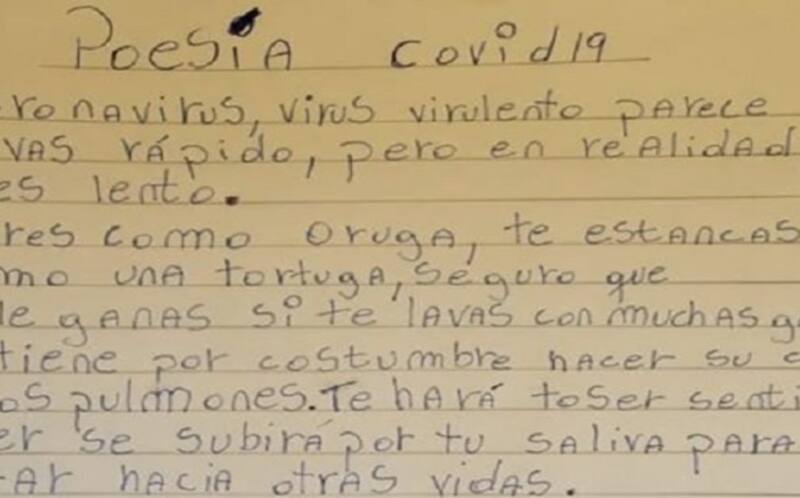 Poesía covid19
ronavirus, virus virulento parece
vas rápido, pero en realidad
es lento.
res como oruga, te estancas
mo una tortuga, seguro que
le ganas si te lavas con muchas ga
tiene por costumbre hacer su c
os pulmones. Te hará toser senti
er se subirá por tu saliva para
ar hacia otras vidas.